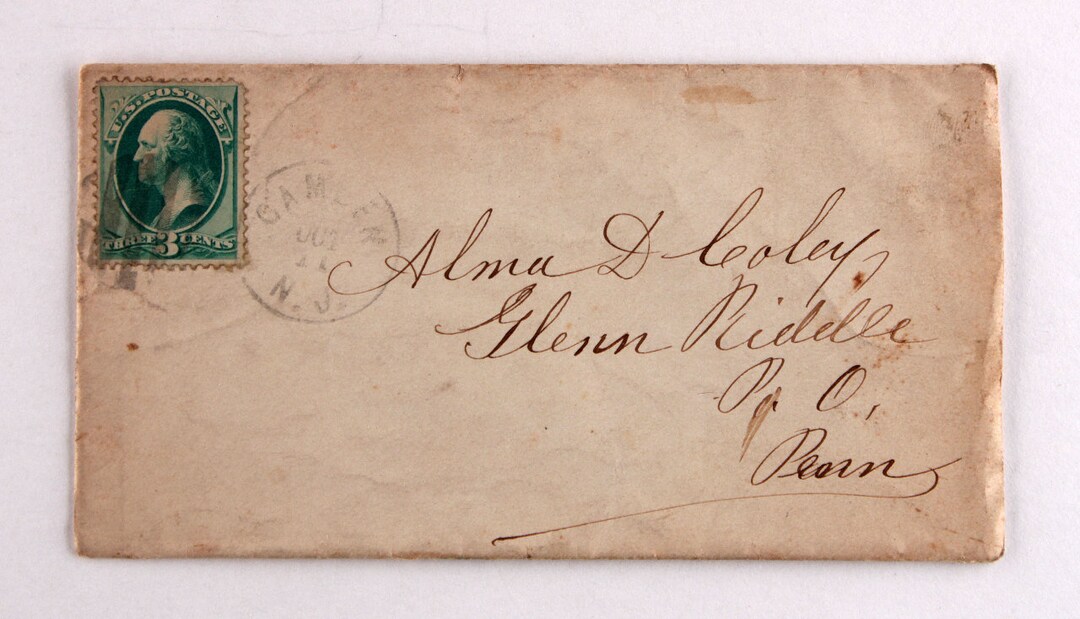 U.S. POSTAGE
THREE 3 CENTS
CAMDEN
OCT
N.J.
Alma D Coley
Glenn Riddle
P. O.
Penn